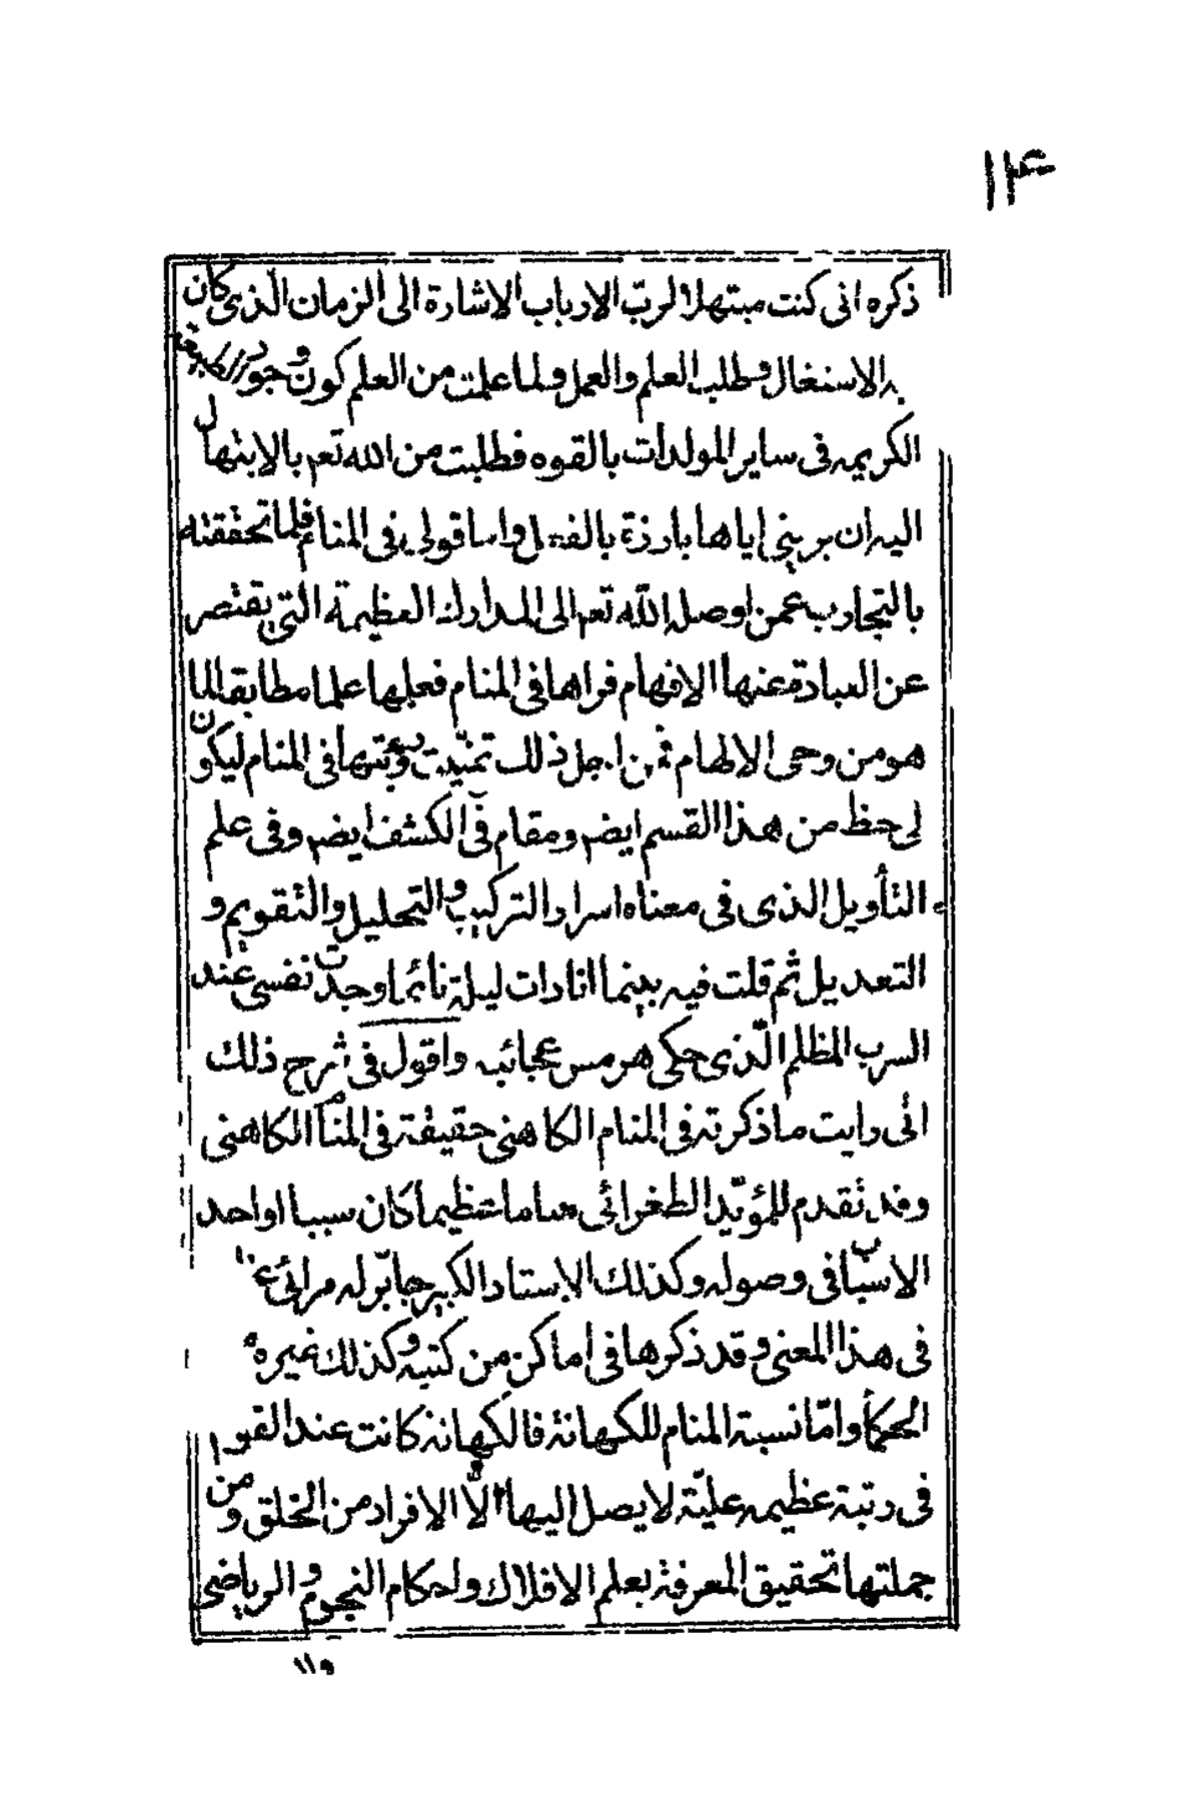 ۱۴
ذكره انى كنت مبتهلا لربّ الارباب الاشارة الى الزمان الّذى كان
به الاستغال وطلب العلم والعمل ولما علمت من العلم كون وجود الطبيعة
الكريمه فى ساير المولدات بالقوه فطلبت من الله تعم بالابتهال
اليه ان يرينى اياها بارزة بالفعل واما قولى فى المنام فلما تحققته
بالتجارب عمن اوصله اللّه تعم الى المدارك العظيمة التى يقتصر
عن العبادة عنها الافهام فراها فى المنام فعلمها علما مطابقا لما
هو من وحى الالهام فمن اجل ذلك تمنّيت رؤيتها فى المنام ليكون
لى حظ من هذا القسم ايضم ومقام فى الكشف ايضم وفى علم
التأويل الذى فى معناه اسرار التركيب والتحليل والتقويم و
التعديل ثم قلت فيه بينما انا ذات ليلة نائما وجدت نفسى عند
السرب المظلم الّذى حكى هرمس عجائبه واقول فى شرح ذلك
انى رايت ما ذكرته فى المنام الكاهنى حقيقة فى المنام الكاهنى
وقد تقدم للمؤيّد الطغرائى مناما عظيما كان سببا او احد
الاسباب فى وصوله وكذلك الاستاد الكبير جابر له مرائى
فى هذا المعنى وقد ذكرها فى اماكن من كتبه وكذلك غيره
الحكمأ وامّا نسبة المنام للكهانة فالكهانة كانت عند القوم
فى رتبة عظيمه عليّة لا يصل اليها الّا الافراد من الخلق ومن
جملتها تحقيق المعرفة بعلم الافلاك واحكام النجوم والرياضى